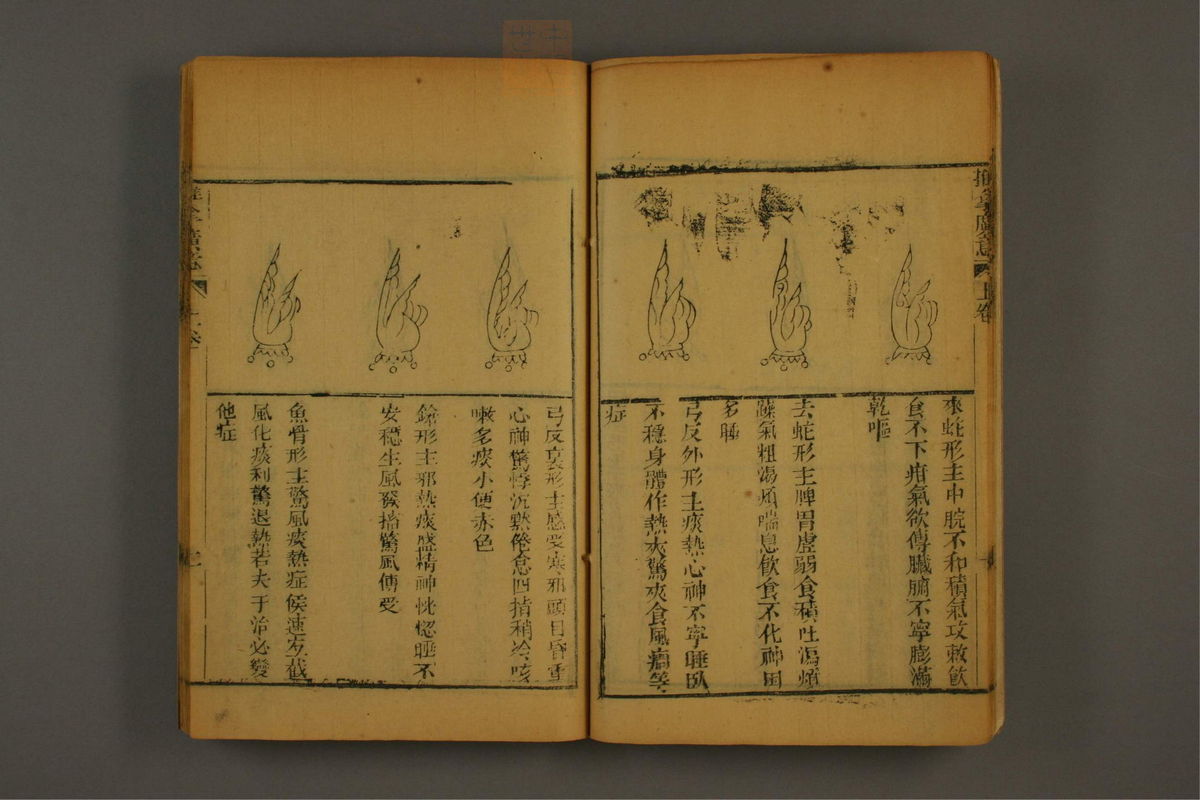 推拿廣意 上卷
來蛇形主中脘不和積氣攻剌飲
食不下疳氣欲傳臟腑不寧膨滿
乾嘔
去蛇形主脾胃虛弱食積吐瀉煩
躁氣粗渴煩喘息飲食不化神困
多睡
弓反外形主痰熱心神不寧睡臥
不穩身體作熱夾驚夾食風癎等
症
弓反裏形主感受寒邪頭目昏重
心神驚悸沉默倦怠四指稍冷咳
嗽多痰小便赤色
鎗形主邪熱痰盛精神恍惚睡不
安穩生風發搐驚風傳受
魚骨形主驚風痰熱症候速宜截
風化痰利驚退熱若夫于治必變
他症